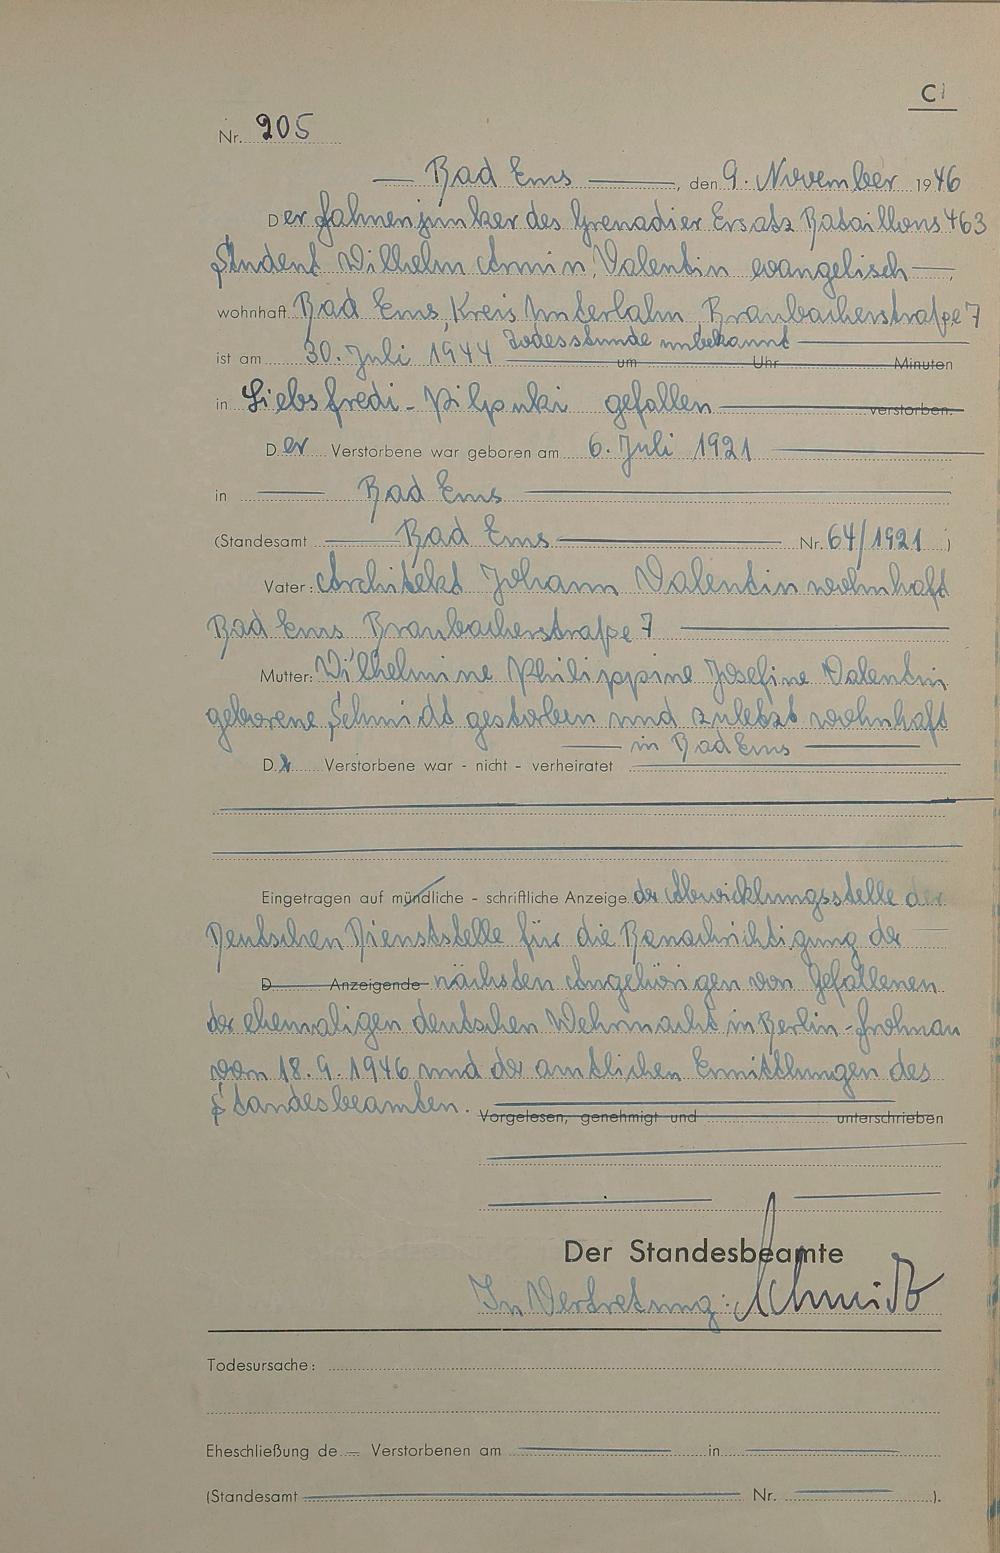 C
Nr. 205
Bad Ems, den 9. November 1946
Der Fahnenjunker des Grenadier Ersatz Bataillons 463
Student Wilhelm Armin Valentin evangelisch
wohnhaft Bad Ems, Kreis Unterlahn Braubacherstraße 7
Todesstunde unbekannt
ist am 30. Juli 1944 um Uhr Minuten
in gefallen verstorben.
Der Verstorbene war geboren am 6. Juli 1921
in Bad Ems
(Standesamt Bad Ems Nr. 64/1921)
Vater: Architekt Johann Valentin wohnhaft
Bad Ems Braubacherstraße 7
Mutter: Wilhelmine Philippine Josefine Valentin
geborene Schmidt gestorben und zuletzt wohnhaft
in Bad Ems
D Verstorbene war - nicht - verheiratet
Eingetragen auf mündliche - schriftliche Anzeige der Abwicklungsstelle der
Deutschen Dienststelle für die Benachrichtigung der
D Anzeigende nächsten Angehörigen von Gefallenen
der ehemaligen deutschen Wehrmacht in Berlin-Frohnau
vom 18.9.1946 und der amtlichen Ermittlungen des
Standesbeamten. Vorgelesen, genehmigt und unterschrieben
Der Standesbeamte
In Vertretung: Schmidt
Todesursache:
Eheschließung de Verstorbenen am in
(Standesamt Nr. ).